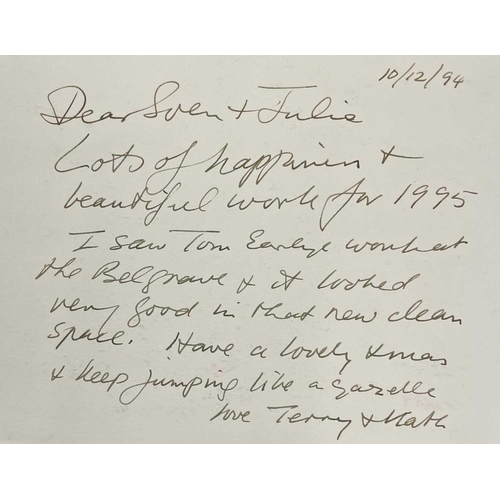 10/12/94
Dear Sven + Julie
Lots of happiness +
beautiful work for 1995
I saw Tom Early's work at
the Belgrave & it looked
very good in that new clean
space. Have a lovely xmas
& keep jumping like a gazelle
love Terry & Kath